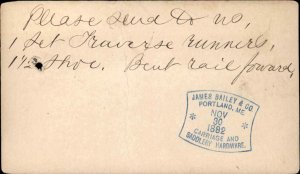 Please send to us,
1 Set Traverse runners,
1 1/2 Shoe. Bent rail forward,
JAMES BAILEY & CO
PORTLAND, ME.
NOV
30
1882
CARRIAGE AND
SADDLERY HARDWARE.